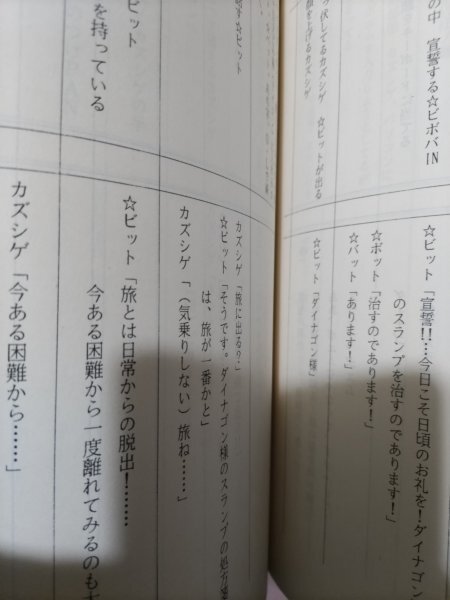 の中　宣誓する☆ビボバIN
☆ビット「宣誓!!…今日こそ日頃のお礼を！ダイナゴン
のスランプを治すのであります！」
☆ボット「治すのであります！」
☆バット「あります！」
っ伏してるカズシゲ　☆ビットが出る
顔を上げるカズシゲ
☆ビット「ダイナゴン様」
☆ビット
カズシゲ「旅に出る？」
☆ビット「そうです。ダイナゴン様のスランプの処方箋
は、旅が一番かと」
カズシゲ「（気乗りしない）旅ね……」
ビット
を持っている
☆ビット「旅とは日常からの脱出！……
今ある困難から一度離れてみるのも
カズシゲ「今ある困難から……」